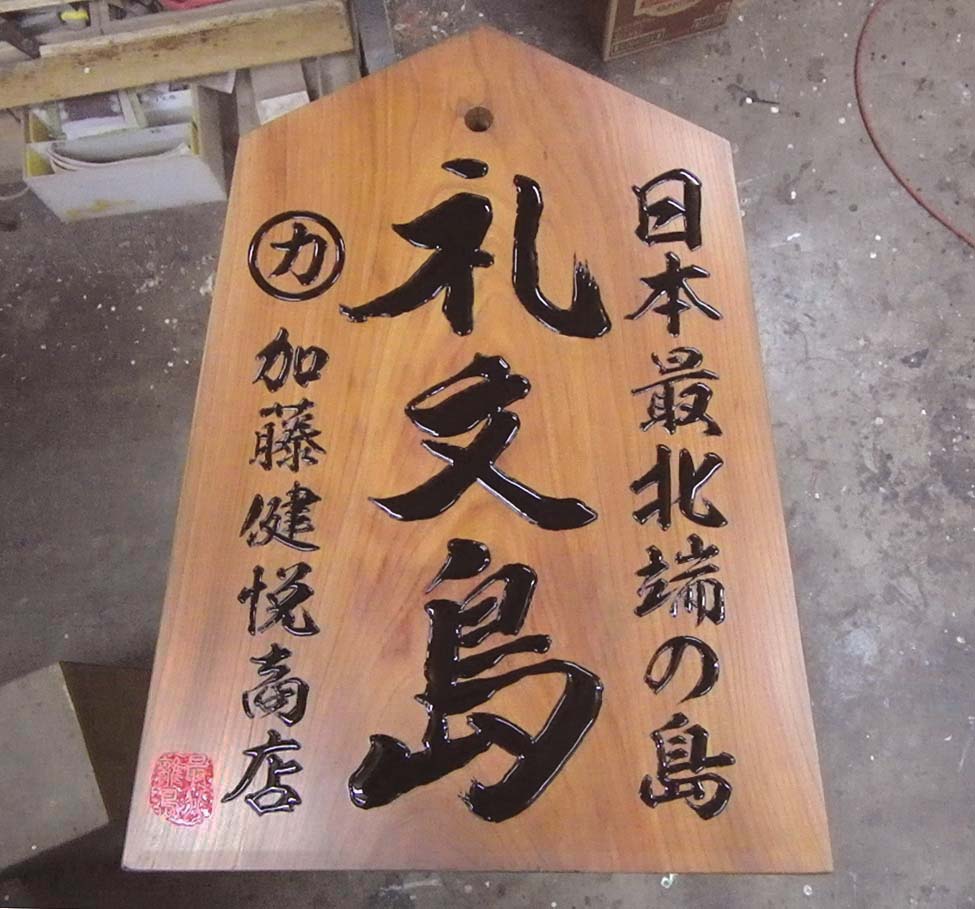 日本最北端の島
礼文島
カ 加藤健悦商店